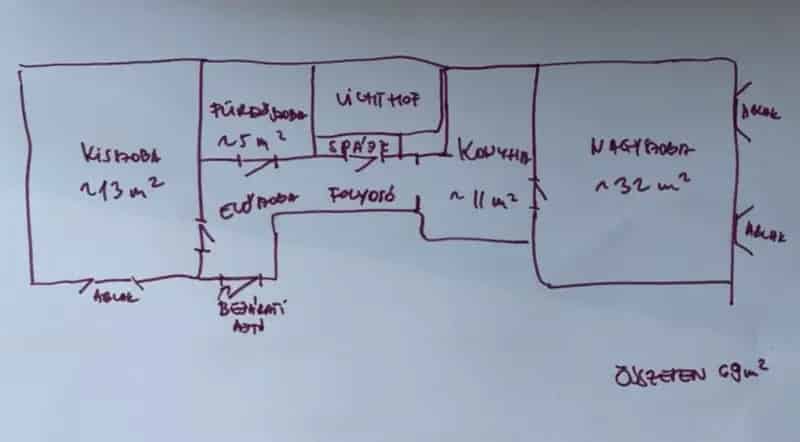 KISSZOBA
~13 m²
FÜRDŐSZOBA
~5 m²
LICHTHOF
SPÁJZ
KONYHA
~11 m²
NAGYSZOBA
~32 m²
ELŐSZOBA
FOLYOSÓ
ABLAK
ABLAK
ABLAK
BEJÁRATI
AJTÓ
ÖSSZESEN 69 m²